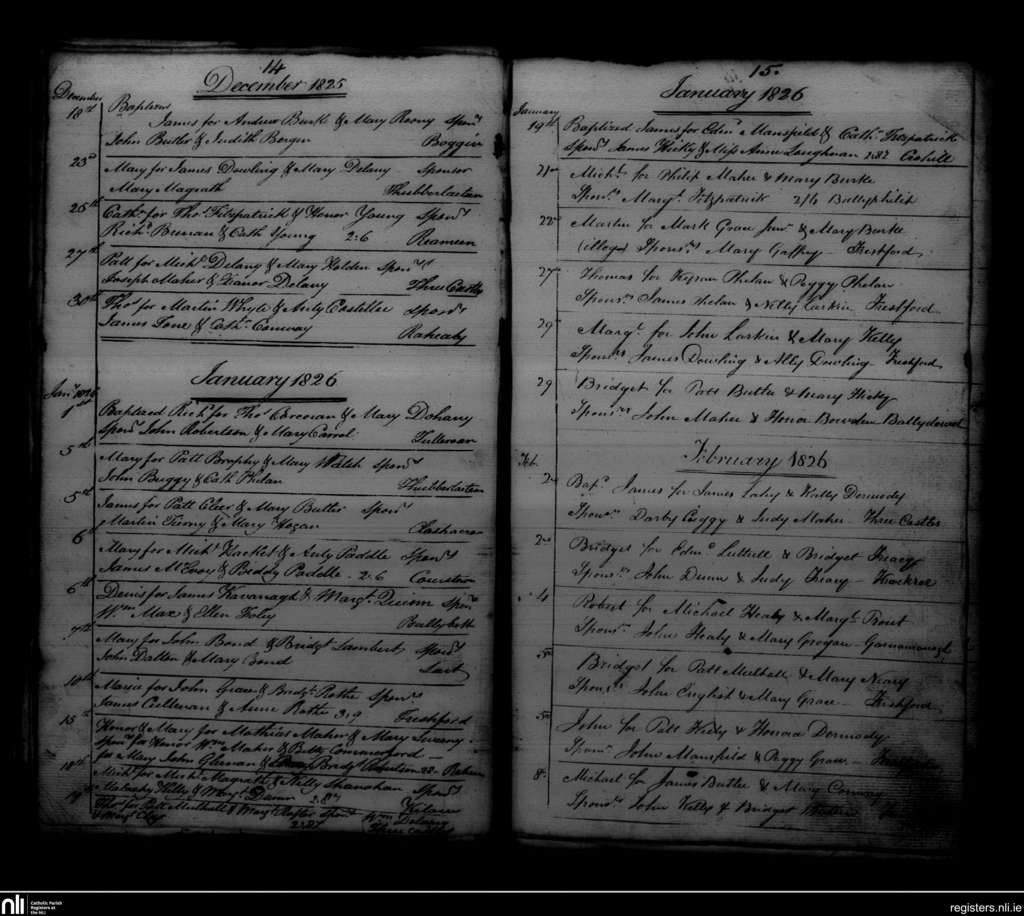 14
December 1825
December
18th Baptism
James for Andrew Burk & Mary Reony Spons
John Butler & Judith Bergin Boggin
23d Mary for James Dowling & Mary Delany Sponsor
Mary Magrath Thubberlastan
25th Cath. for Thos. Fitzpatrick & Honor Young Spons
Richd. Brenan & Cath Young 2:6 Reameen
27th Patt for Michl. Delany & Mary Holden Spons
Joseph Maher & Elanor Delany Three Castles
30th Thos. for Martin Whyte & Anty Costellor Spons
James Tone & Cath. Conway Raheaby
January 1826
Jany. 1826
1st Baptized Richd. for Thos. Corcoran & Mary Dohany
Spons John Robertson & Mary Carrol Tulleroan
5th Mary for Patt Brophy & Mary Walsh Spons
John Buggy & Cath Phelan Thubberlastan
5th James for Patt Cleer & Mary Butler Spons
Martin Tierny & Mary Hogan
6th Mary for Michl. Hacket & Anty Paddle Spons
James McEvoy & Biddy Padelle 2:6
6th Denis for James Kavanagh & Margt. Spons
Wm. Max & Ellen Foley
7th Mary for John Bond & Bridgt Lambert Spons
John Dalton & Mary Bond
10th Maria for John Grace & Bridgt. Rothe Spons
James Cullenan & Anne Rothe 3:9 Freshford
15th Honor & Mary for Mathias Maher & Mary Sweeny
Spons for Honor Wm. Maher & Betty Commerford
for Mary John Glenan & Bridgt
18th Michl. for Michl. Magrath & Nelly Shanahan Spons
Malachy Kelly & Margt. Kilmore
19th Thos. for Patt Mulhall & Margt Spons Wm Delany
& Margt Clear 2:8½ Three castles
15.
January 1826
January
19th Baptized James for Edmd. Mansfield & Cath. Fitzpatrick
Spons James Hicky & Miss Anne Loughnan 2:8½
21st Michl. for Philip Maher & Mary Burke
Spons. Margt. Fitzpatrick 2/6 Ballyphilip
22 Martin for Mark Grace Junr. & Mary Burke
(illeger) Sponsr. Mary Gaffny Freshford
27 Thomas for Kyran Phelan & Peggy Phelan
Sponsrs James Phelan & Nelly Larkin Freshford
29 Margt. for John Larkin & Mary Kelly
Sponsrs James Dowling & Ally Dowling Freshford
29 Bridget for Patt Butler & Mary Hicky
Sponsrs John Maher & Honor Bowden Ballydowel
February 1826
Feb.
2 Bapd. James for James Lahy & Kitty Dermody
Sponsrs Darby Cuggy & Judy Maher Three Castles
2 Bridget for Edmd. Luttrell & Bridget Treacy
Sponsrs John Dunn & Judy Treacy
4 Robert for Michael Healy & Margt. Trout
Sponsr. John Healy & Mary Grogan Garnamanagh
5 Bridget for Patt Mulhall & Mary Neary
Sponsrs John English & Mary Grace Freshford
5 John for Patt Hicky & Honora Dermody
Sponsrs John Mansfield & Peggy Grace
8 Michael for James Butler & Mary Conway
Sponsrs John Kelly & Bridget
nli
Catholic Parish
Registers at
the NLI
registers.nli.ie